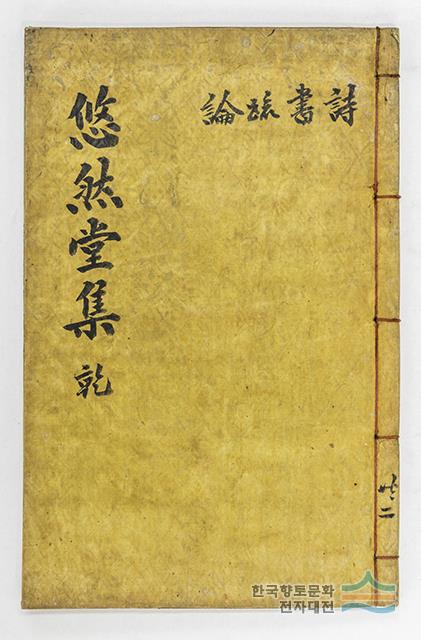 詩書疏論
悠然堂集 乾
共二
한국향토문화
전자대전